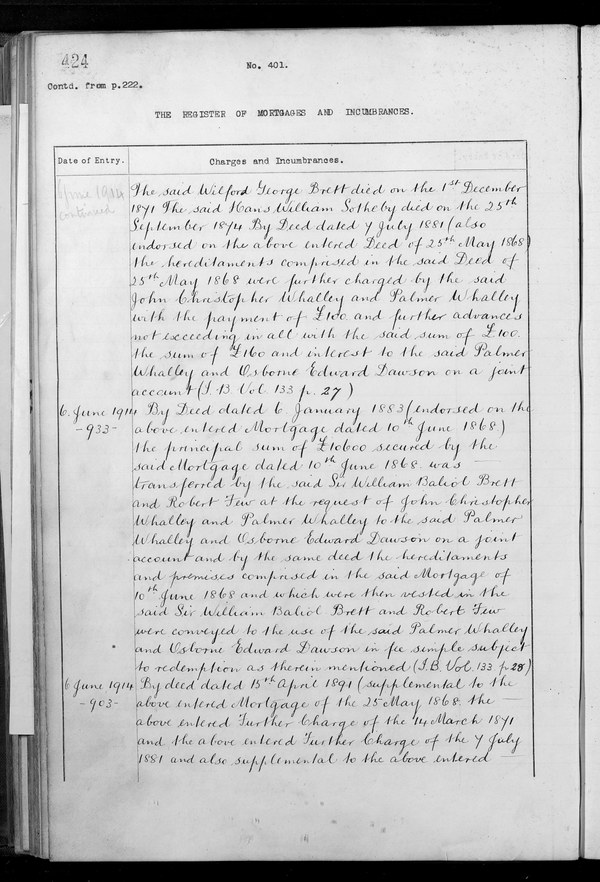 424
No. 401.
Contd. from p.222.
THE REGISTER OF MORTGAGES AND INCUMBRANCES.
Date of Entry.
Charges and Incumbrances.
6 June 1914
continued
The said Wilford George Brett died on the 1st December
1871 The said Hans William Sotheby died on the 25th
September 1874 By Deed dated 7 July 1881 (also
endorsed on the above entered Deed of 25th May 1868)
the hereditaments comprised in the said Deed of
25th May 1868 were further charged by the said
John Christopher Whalley and Palmer Whalley
with the payment of £100 and further advances
not exceeding in all with the said sum of £100
the sum of £160 and interest to the said Palmer
Whalley and Osborne Edward Dawson on a joint
account (I.B. Vol. 133 p. 27)
6. June 1914
-933-
By Deed dated 6. January 1883 (endorsed on the
above entered Mortgage dated 10th June 1868)
the principal sum of £10600 secured by the
said Mortgage dated 10th June 1868 was
transferred by the said Sir William Baliol Brett
and Robert Few at the request of John Christopher
Whalley and Palmer Whalley to the said Palmer
Whalley and Osborne Edward Dawson on a joint
account and by the same deed the hereditaments
and premises comprised in the said Mortgage of
10th June 1868 and which were then vested in the
said Sir William Baliol Brett and Robert Few
were conveyed to the use of the said Palmer Whalley
and Osborne Edward Dawson in fee simple subject
to redemption as therein mentioned (I.B. Vol. 133 p. 28)
6 June 1914
-903-
By deed dated 15th April 1891 (supplemental to the
above entered Mortgage of the 25 May 1868 the
above entered Further Charge of the 14 March 1871
and the above entered Further Charge of the 7 July
1881 and also supplemental to the above entered